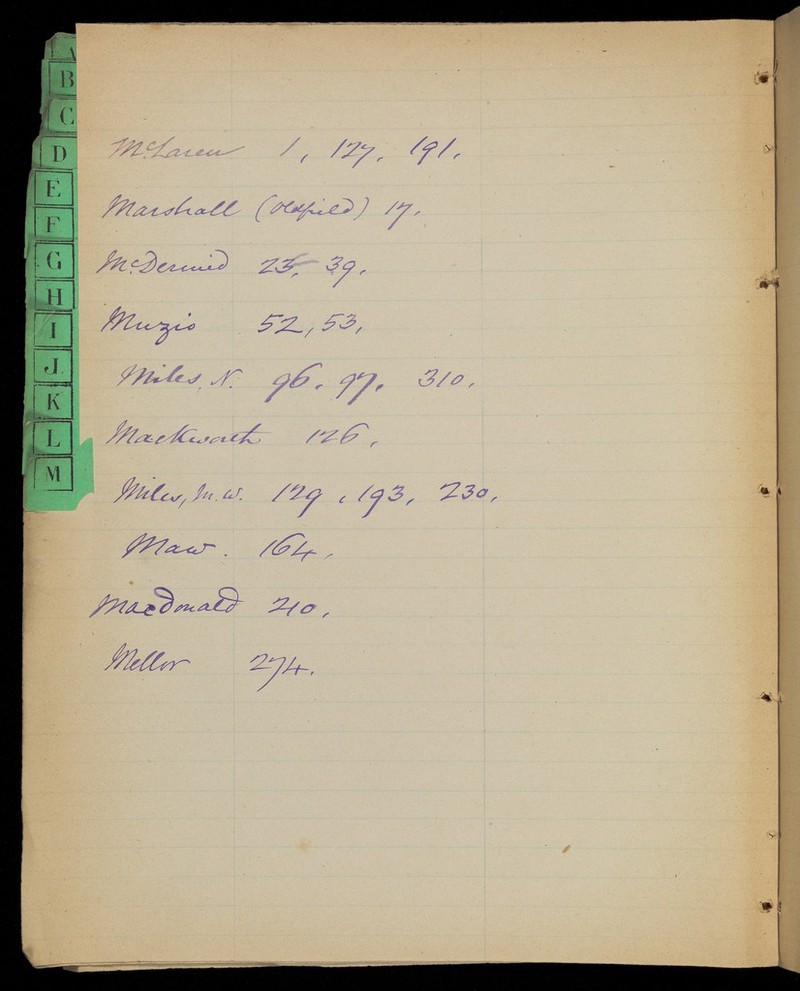 A
B
C
D
E
F
G
H
I
J
K
L
M
McLaren 1, 127, 191.
Marshall (Oldfield) 17.
McDermid 25, 39.
Muzio 52, 53,
Miles, N. 96, 97, 310.
Mackworth 126,
Miles, M.W. 129, 193, 230,
Maw. 164,
Macdonald 210,
Mellor 274.